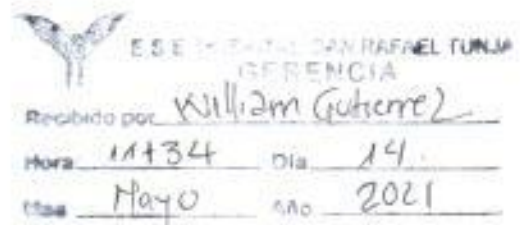 E.S.E HOSPITAL SAN RAFAEL TUNJA
GERENCIA
Recibido por William Gutierrez
Hora 11+34 Dia 14.
Mes Mayo Año 2021